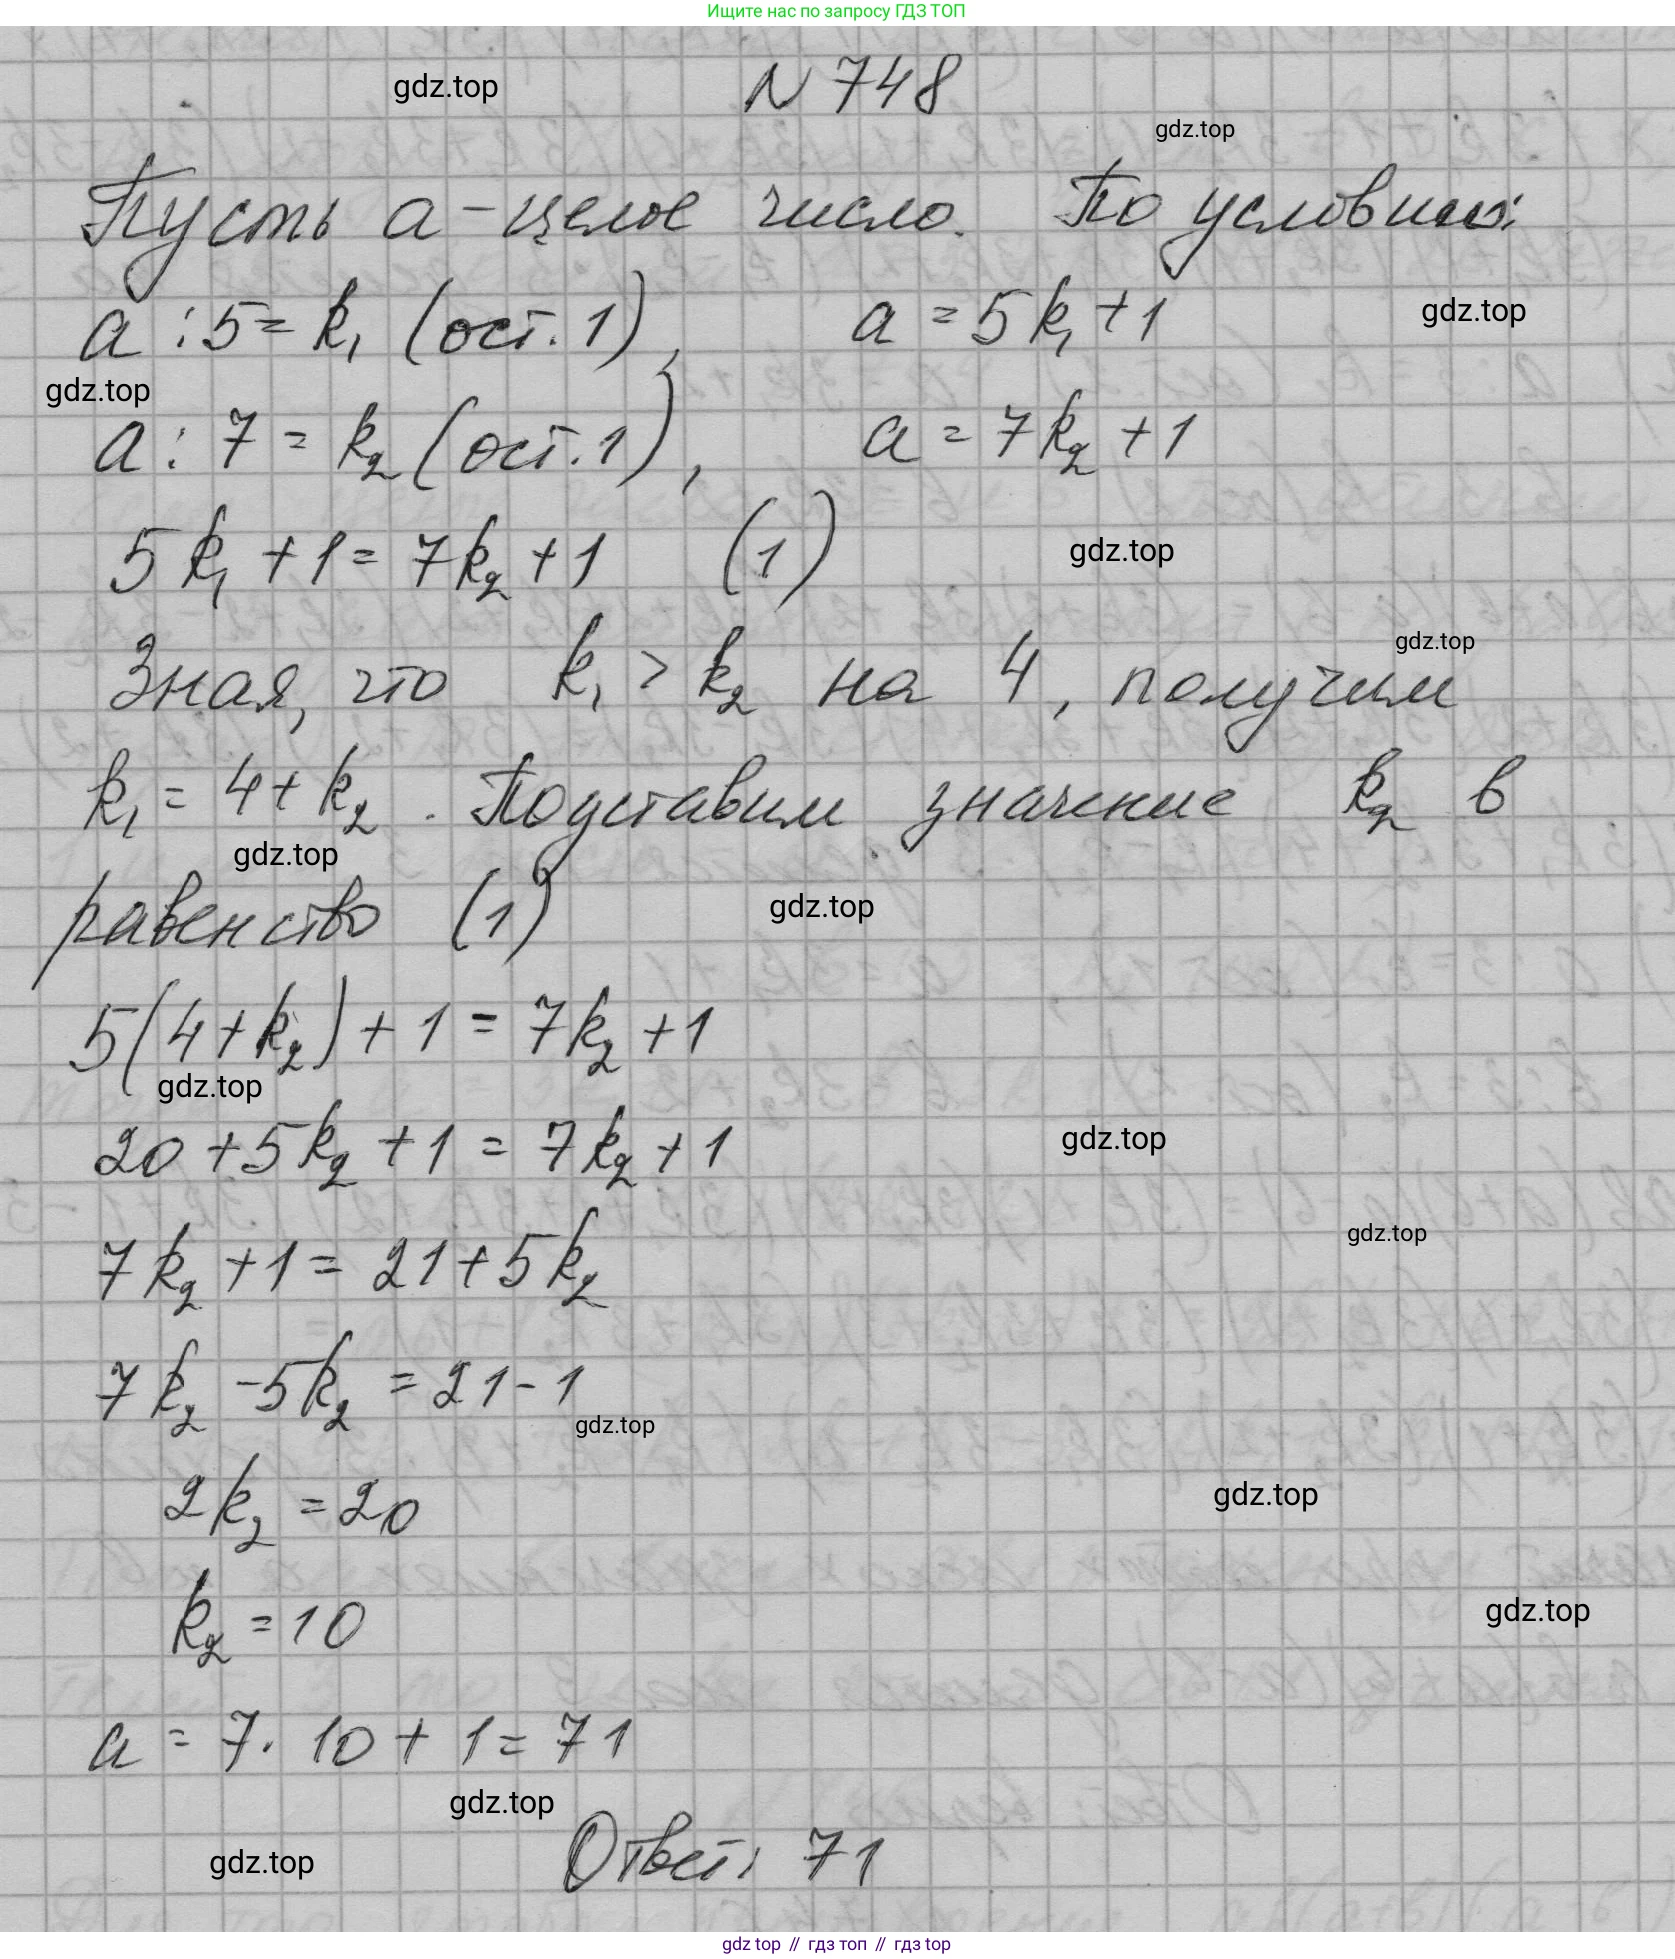 Ищите нас по запросу ГДЗ ТОП
N 748
gdz.top
gdz.top
Пусть a - целое число. По условию:
a : 5 = k₁ (ост. 1), a = 5k₁ + 1
gdz.top
gdz.top
a : 7 = k₂ (ост. 1), a = 7k₂ + 1
5k₁ + 1 = 7k₂ + 1 (1)
gdz.top
gdz.top
Зная, что k₁ > k₂ на 4, получим
k₁ = 4 + k₂. Подставим значение k₂ в
gdz.top
равенство (1)
gdz.top
5(4 + k₂) + 1 = 7k₂ + 1
gdz.top
20 + 5k₂ + 1 = 7k₂ + 1
gdz.top
gdz.top
7k₂ + 1 = 21 + 5k₂
7k₂ - 5k₂ = 21 - 1
gdz.top
2k₂ = 20
gdz.top
k₂ = 10
gdz.top
a = 7 · 10 + 1 = 71
gdz.top
Ответ: 71
gdz.top
gdz top // гдз топ // гдз top